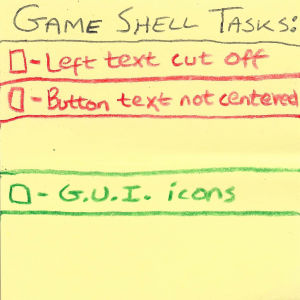 GAME SHELL TASKS:
- Left text cut off
- Button text not centered
- G.U.I. icons